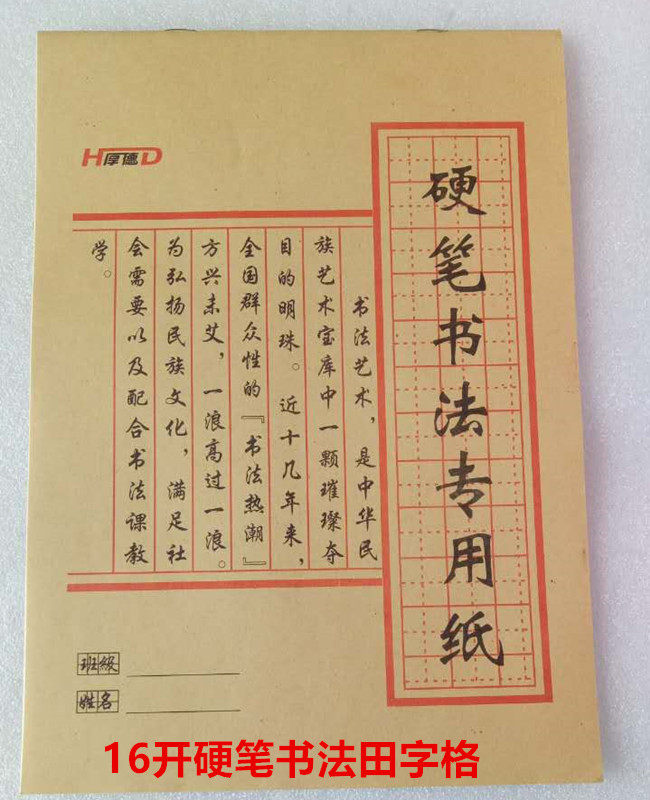 H厚德D
硬笔书法专用纸
书法艺术，是中华民
族艺术宝库中一颗璀璨夺
目的明珠。近十几年来，
全国群众性的『书法热潮』
方兴未艾，一浪高过一浪。
为弘扬民族文化，满足社
会需要以及配合书法课教
学。
班级
姓名
16开硬笔书法田字格